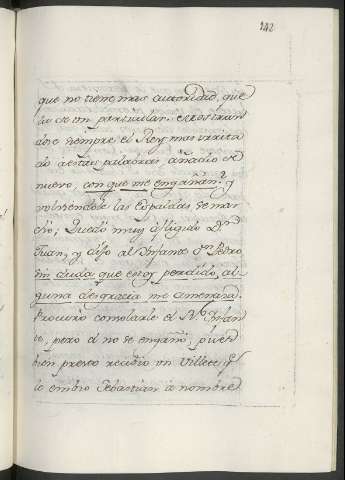 142
que no tiene mas autoridad, que
la de un particular. Mostran
dose siempre el Rey mas irrita
do a estas palabras, añadio de
nuevo, con que me engañan? y
volviendole las espaldas se mar
chó; Quedó muy afligido Dn
Juan, y dijo al Infante Dn Pedro
sin duda que estoy perdido, al
guna desgracia me amenaza.
Procuró consolarle el Infan
te, pero el no se engañó, pues
bien presto recibio un Villete q
le embio Sebastian a nombre